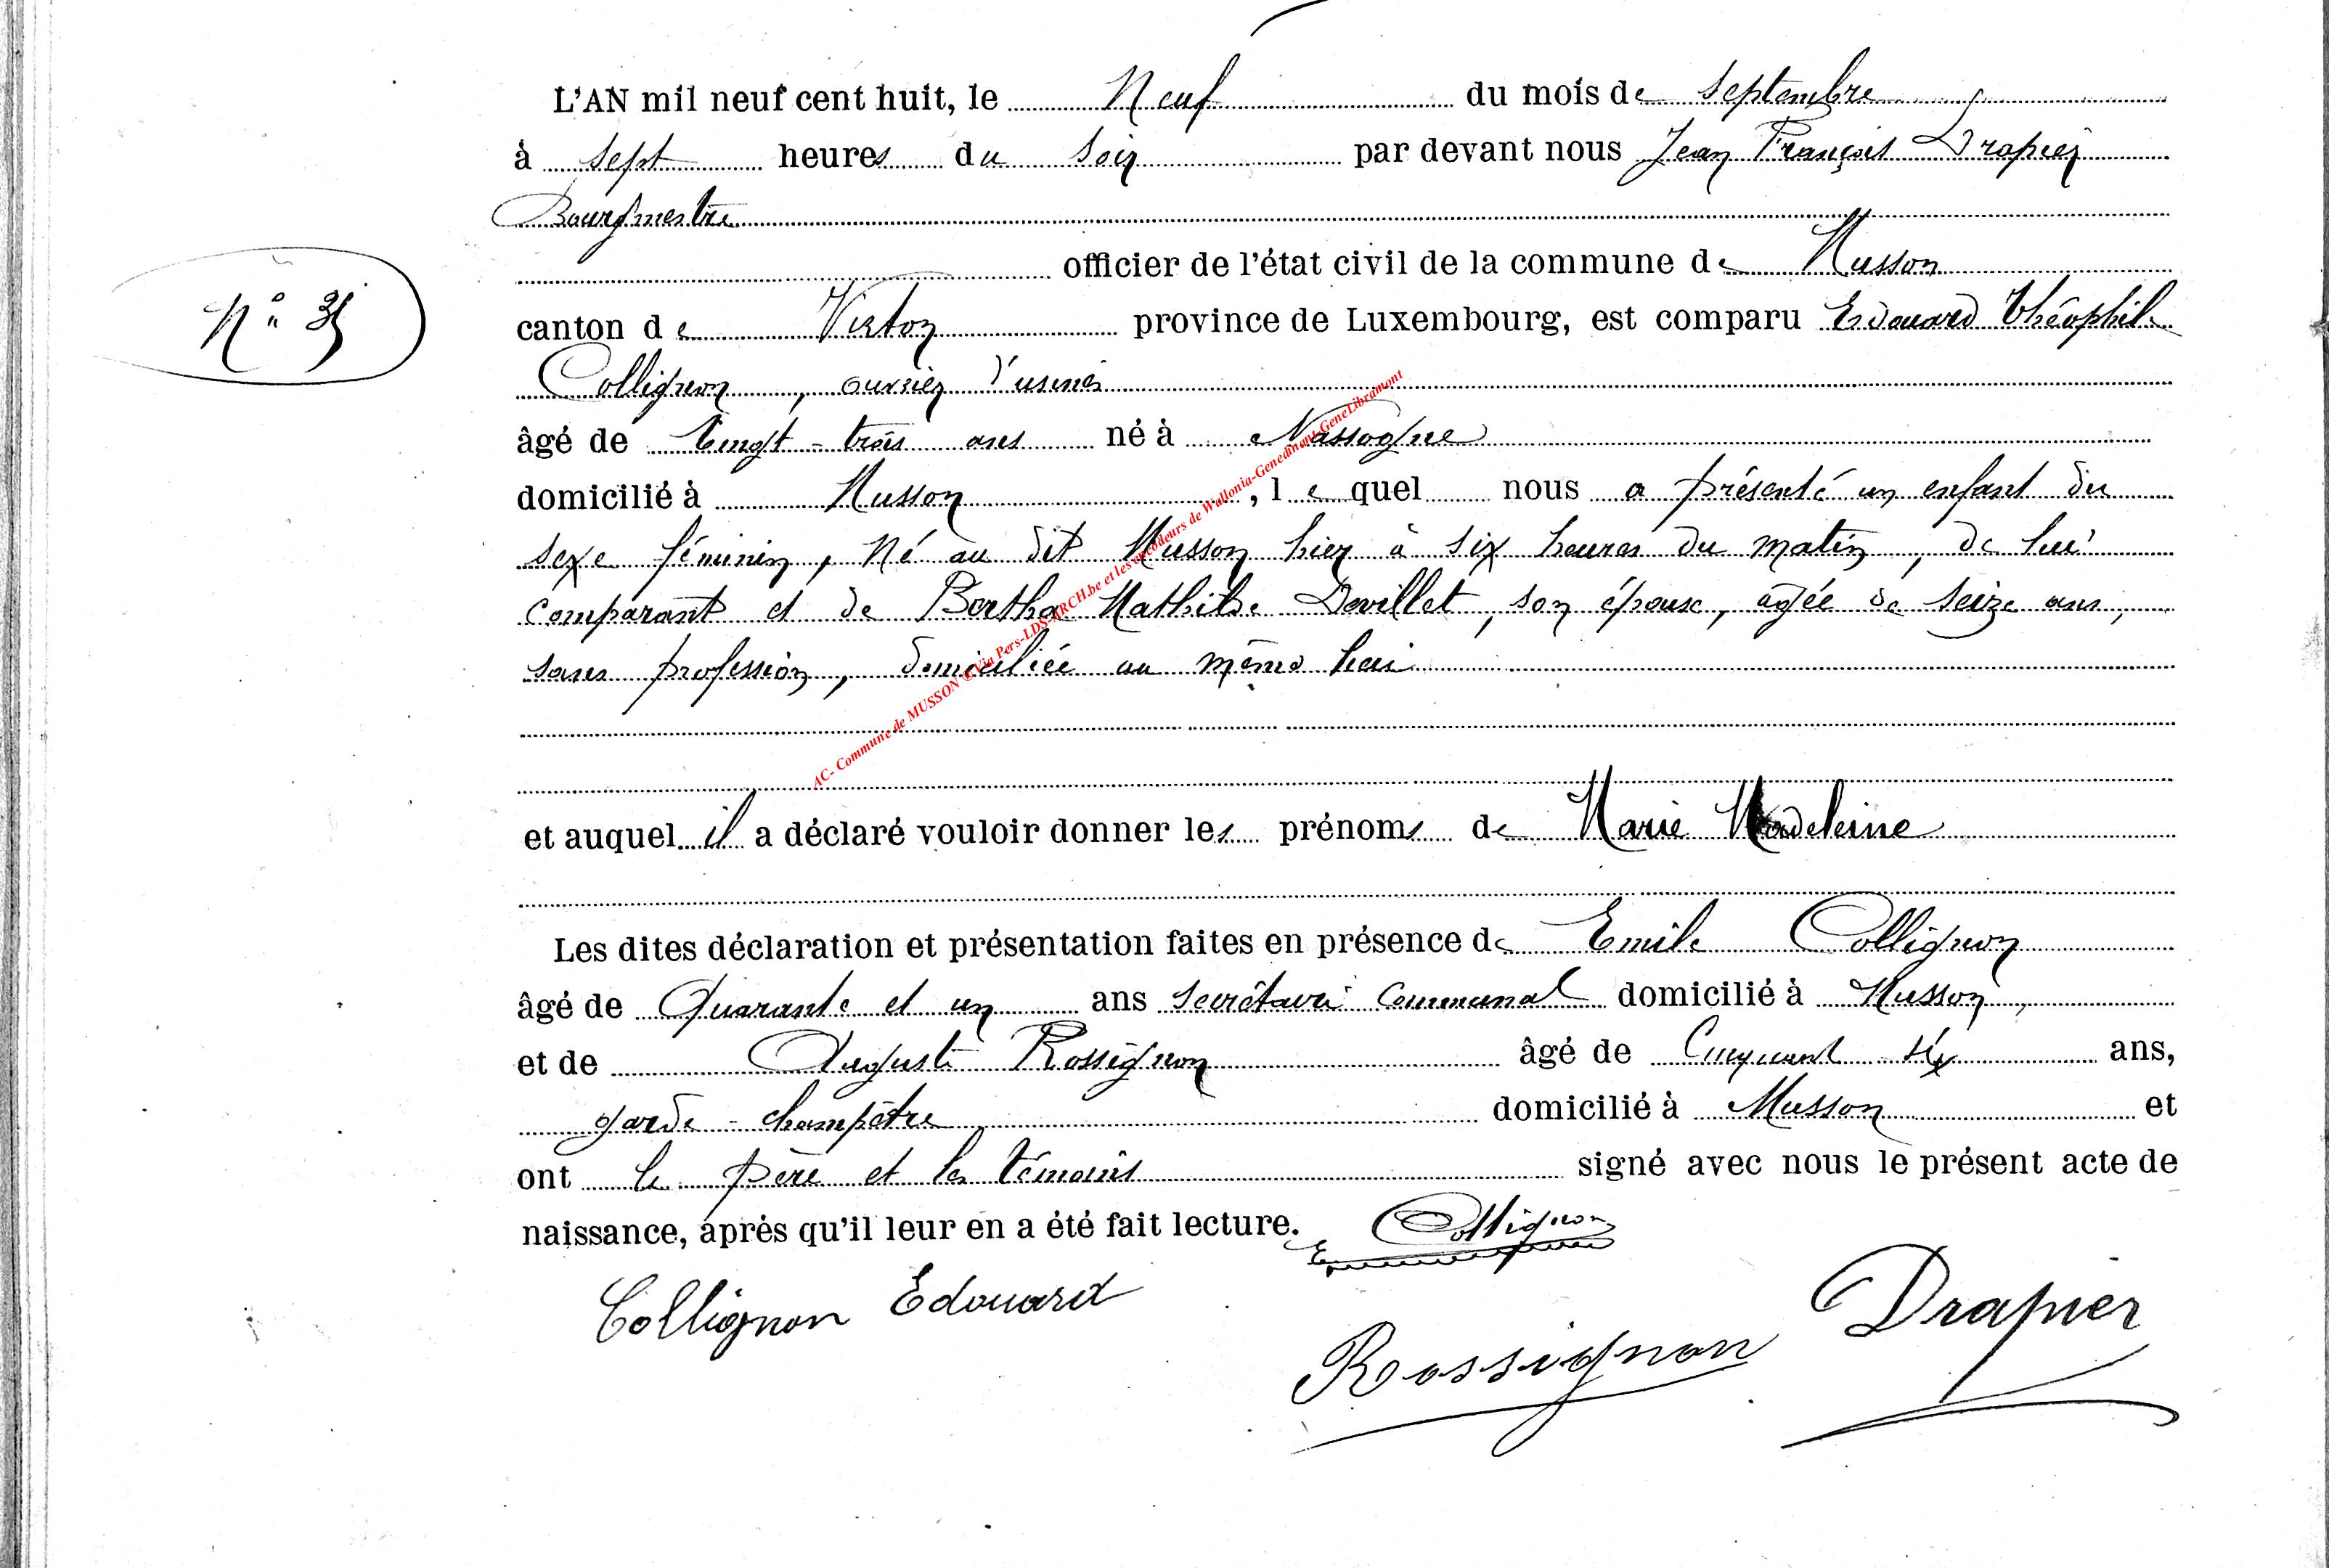 L'AN mil neuf cent huit, le Neuf du mois de Septembre
à Sept heures du soir par devant nous Jean François Drapier
Bourgmestre
officier de l'état civil de la commune de Musson
N°
canton de Virton province de Luxembourg, est comparu Edouard Théophile
Collignon, ouvrier d'usines
âgé de vingt-trois ans né à Nassogne
domicilié à Musson, lequel nous a présenté un enfant du
sexe féminin, né au dit Musson hier à six heures du matin, de lui
comparant et de Bertha Mathilde Devillet, son épouse, agée de seize ans,
sans profession, domiciliée au même lieu
AC- Commune de MUSSON @ Via Pers-LDS-ARCH.be et les encodeurs de Wallonia-Genedinant-GeneLibramont
et auquel il a déclaré vouloir donner les prénoms de Marie Madeleine
Les dites déclaration et présentation faites en présence de Emile Collignon
âgé de Quarante et un ans secrétaire communal domicilié à Musson,
et de Auguste Rossignon âgé de Cinquante six ans,
garde-champêtre domicilié à Musson et
ont le père et les témoins signé avec nous le présent acte de
naissance, après qu'il leur en a été fait lecture. E Collignon
Collignon Edouard
Rossignon Drapier